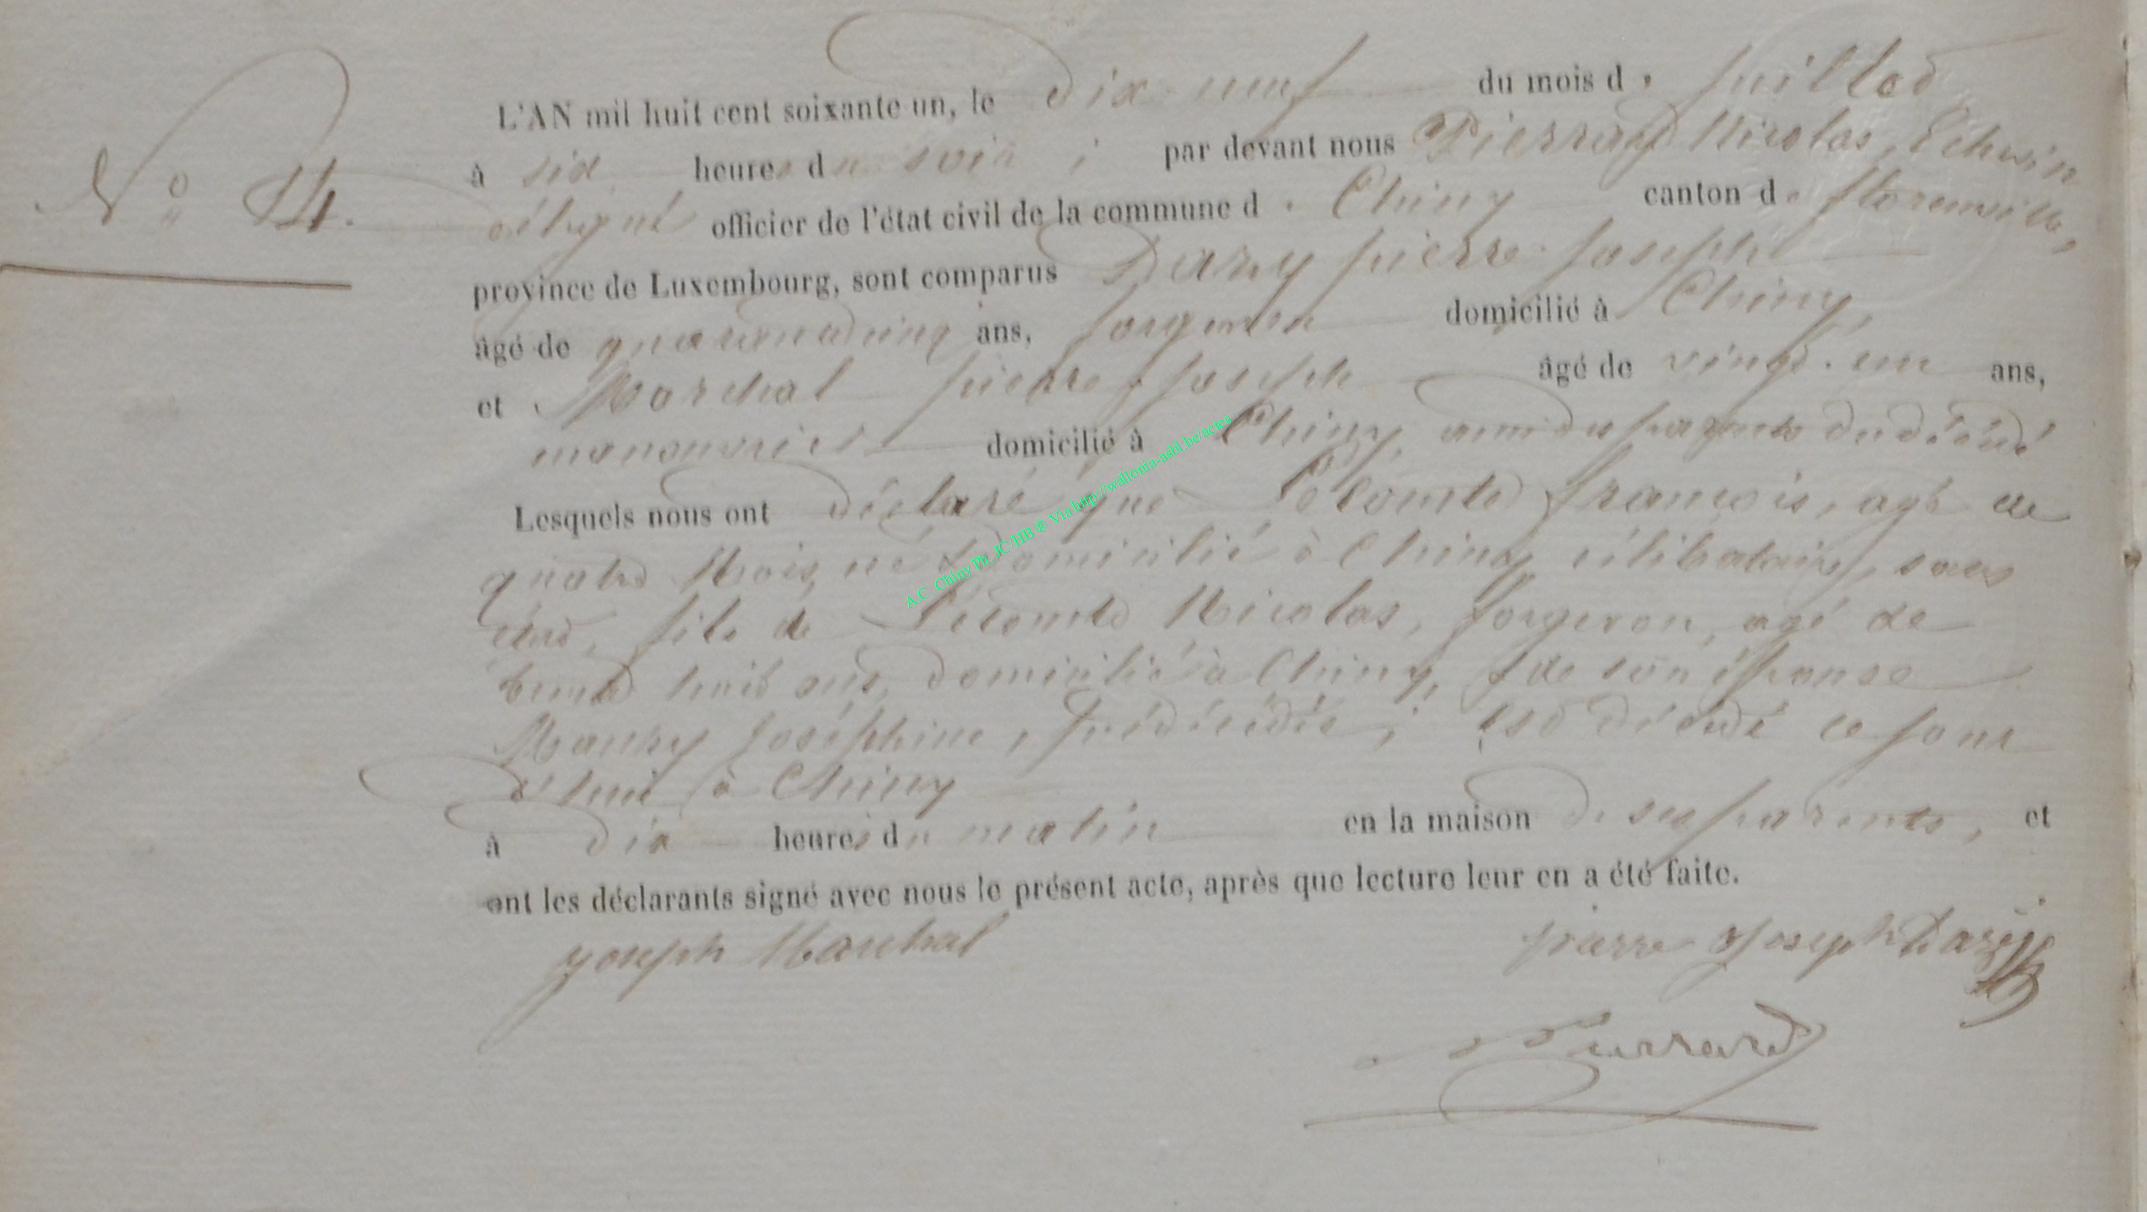 N° 14.
L'AN mil huit cent soixante un, le dix neuf du mois de juillet
à six heures du soir, par devant nous Pierrard Nicolas, Echevin
délégué officier de l'état civil de la commune de Chiny canton de florenville,
province de Luxembourg, sont comparus Dazy pierre-joseph
âgé de quarante cinq ans, forgeron domicilié à Chiny,
et Marchal pierre-joseph âgé de vingt-un ans,
manouvrier domicilié à Chiny, amis des parents du décédé
Lesquels nous ont déclaré que Lecomte françois, agé de
quatre Mois, né & domicilié à Chiny, célibataire, sans
état, fils de Lecomte Nicolas, forgeron, agé de
trente huit ans, domicilié à Chiny, & de son épouse
Maury Joséphine, prédécédée ; est décédé ce jour
d'hui à Chiny
à dix heures du matin en la maison de ses parents, et
ont les déclarants signé avec nous le présent acte, après que lecture leur en a été faite.
joseph Marchal pierre joseph Dazy
Pierrard
A.C. Chiny Ph. JC HB © Via http://wallonia-asbl.be/actes